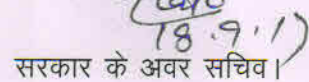 18.9.17
सरकार के अवर सचिव।